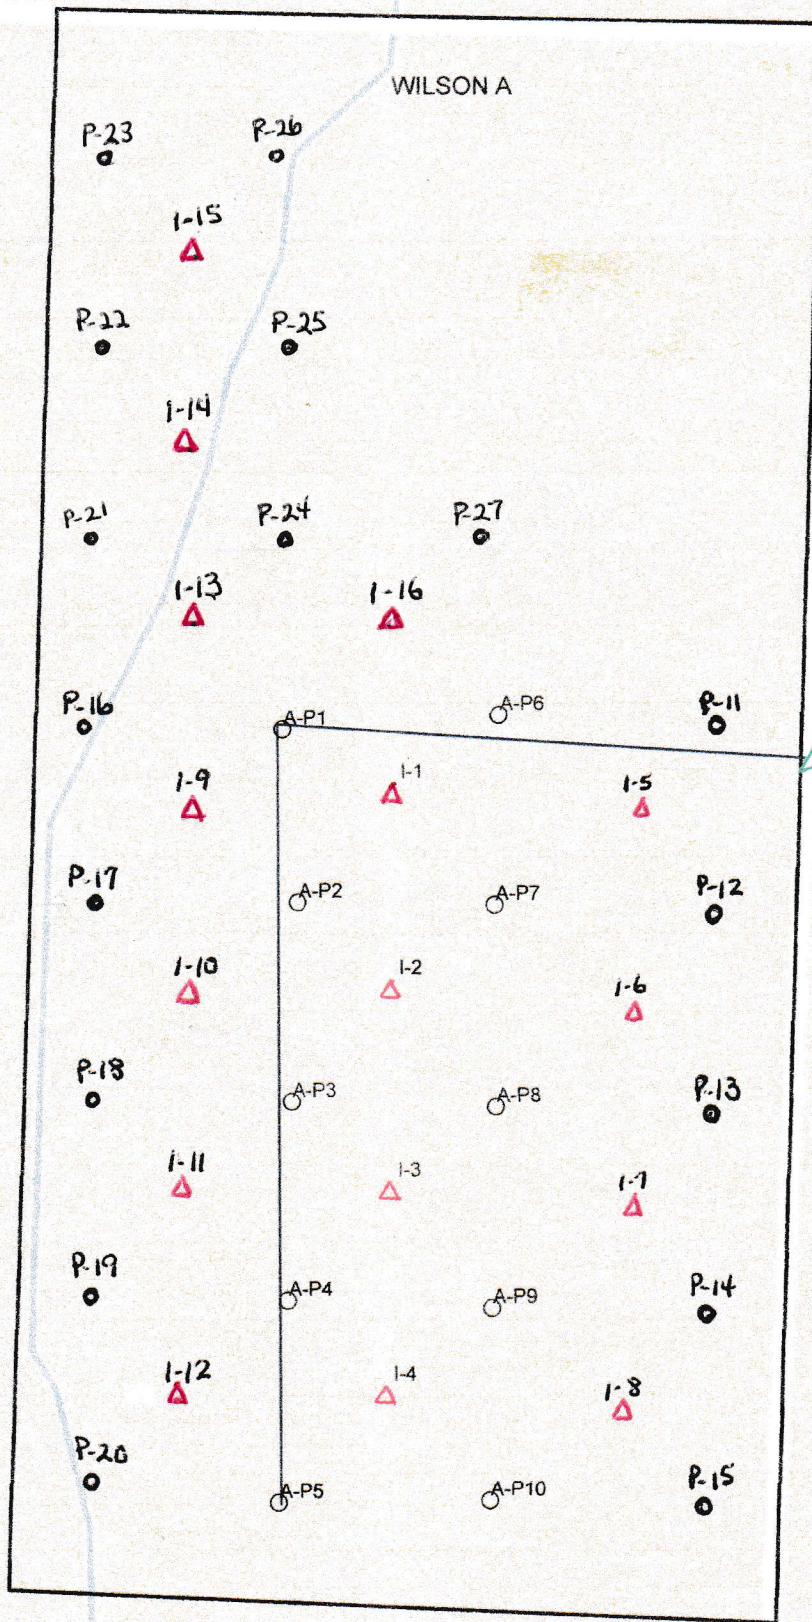 WILSON A
P-23 P-26
1-15
P-22 P-25
1-14
P-21 P-24 P-27
1-13 1-16
P-16 A-P1 A-P6 P-11
1-9 I-1 1-5
P-17 A-P2 A-P7 P-12
1-10 I-2 1-6
P-18 A-P3 A-P8 P-13
1-11 I-3 1-7
P-19 A-P4 A-P9 P-14
1-12 I-4 1-8
P-20 A-P5 A-P10 P-15